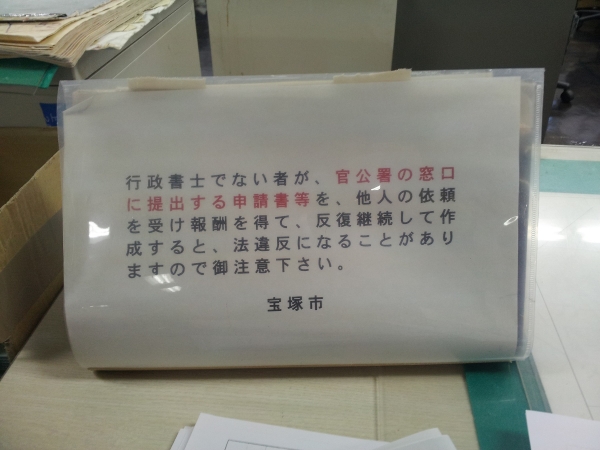 行政書士でない者が、官公署の窓口
に提出する申請書等を、他人の依頼
を受け報酬を得て、反復継続して作
成すると、法違反になることがあり
ますので御注意下さい。
宝塚市